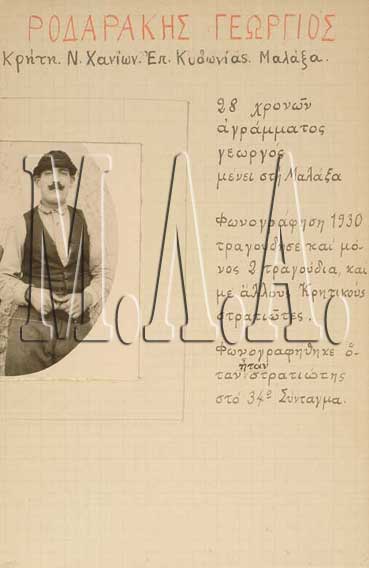 ΡΟΔΑΡΑΚΗΣ ΓΕΩΡΓΙΟΣ
Κρήτη. Ν. Χανίων. Ἐπ. Κυδωνίας. Μαλάξα.
28 χρονῶν
ἀγράμματος
γεωργός
μενει στή Μαλάξα
Φωνογράφηση 1930
τραγούδησε καί μό-
νος 2 τραγούδια, και
με ἄλλους Κρητικούς
στρατιῶτες.
Φωνογραφήθηκε ὅ-
ταν ἦταν στρατιώτης
στό 34º Σύνταγμα.
Μ.Λ.Α.